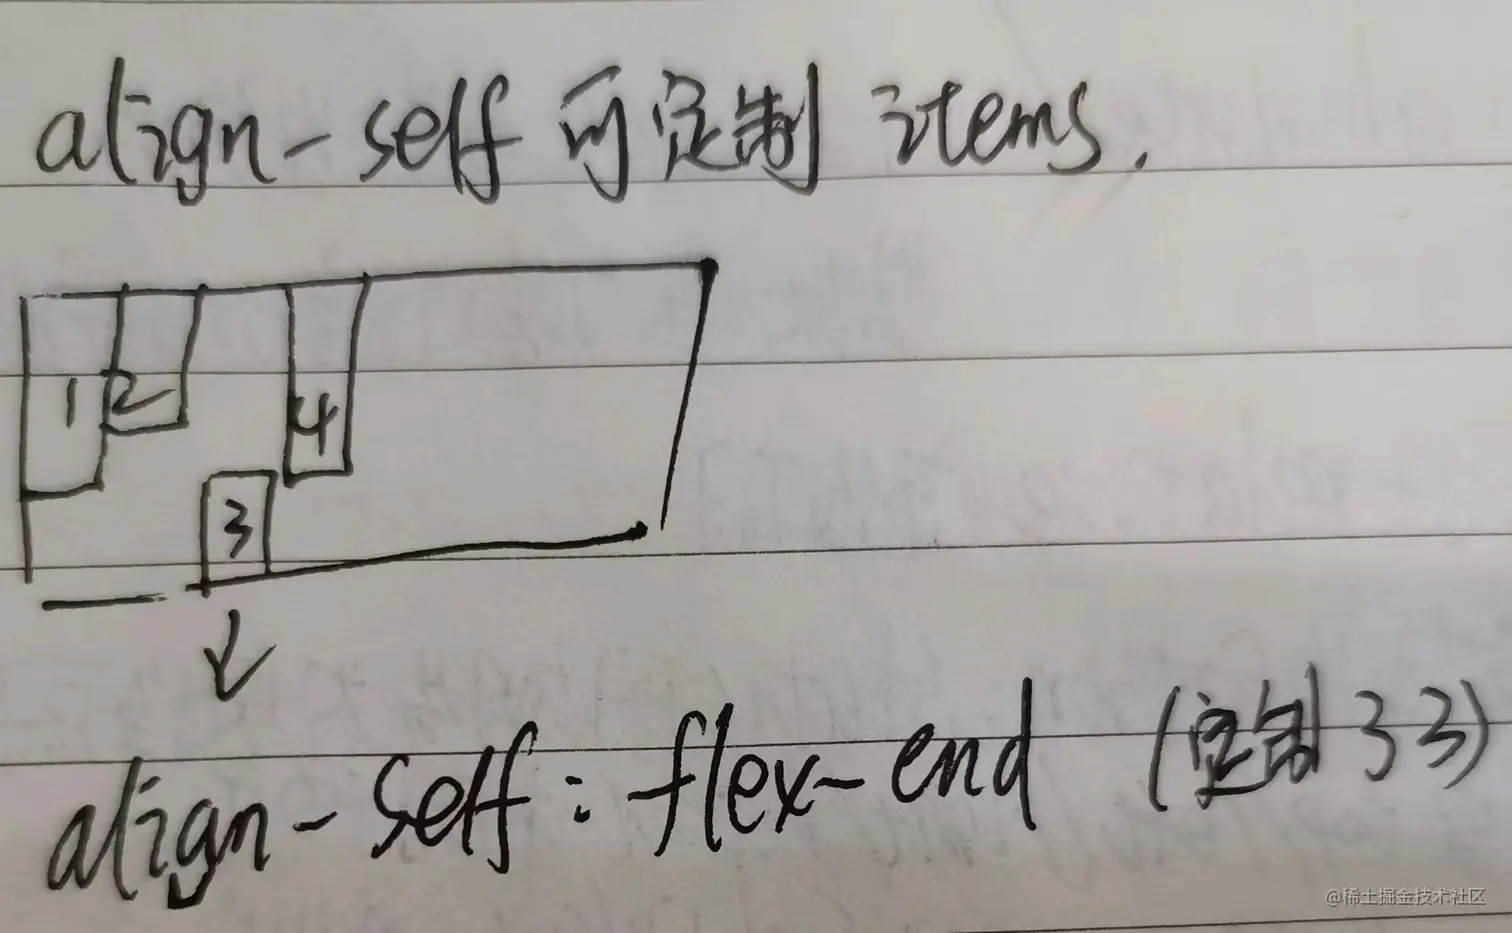 align-self 可定制 items.
1 2 4
3
align-self : flex-end (定制 3 3)
@稀土掘金技术社区